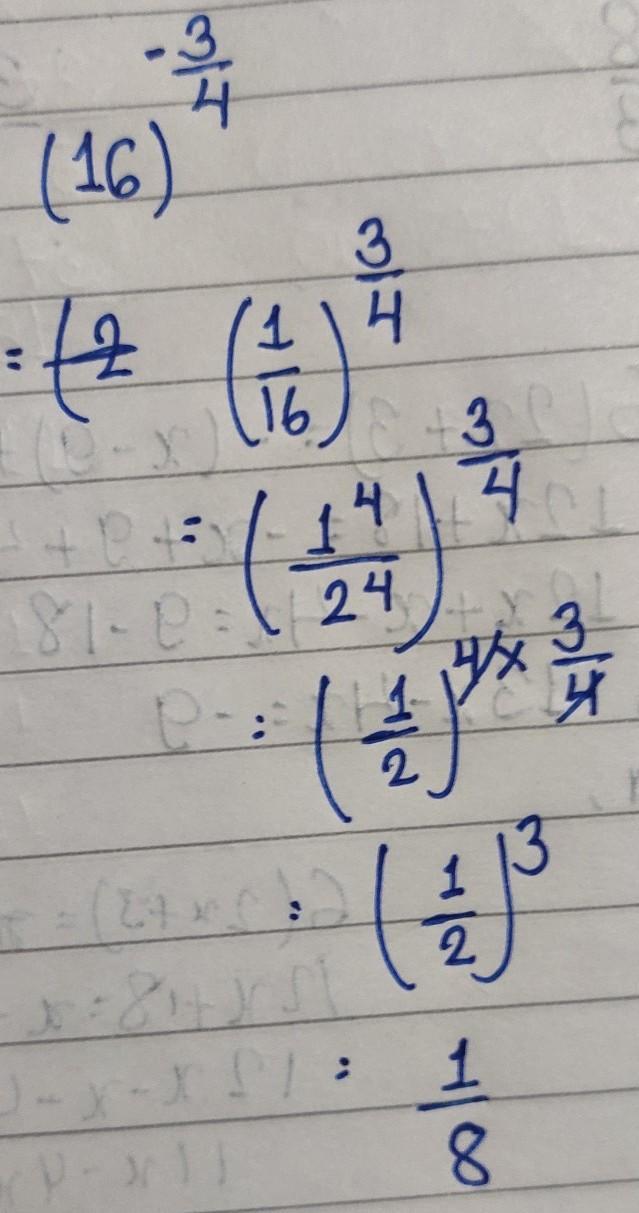 (16)^{-\frac{3}{4}}
= (2 (\frac{1}{16})^{\frac{3}{4}}
= (\frac{1^4}{2^4})^{\frac{3}{4}}
: (\frac{1}{2})^{4 \times \frac{3}{4}}
: (\frac{1}{2})^3
: \frac{1}{8}